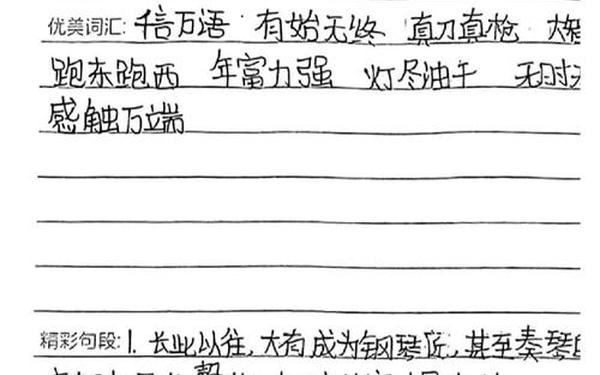 优美词汇: 千言万语 有始无终 真刀真枪 大
跑东跑西 年富力强 灯尽油干 无时
感触万端
精彩句段: 1. 长此以往, 大有成为钢琴匠, 甚至奏琴